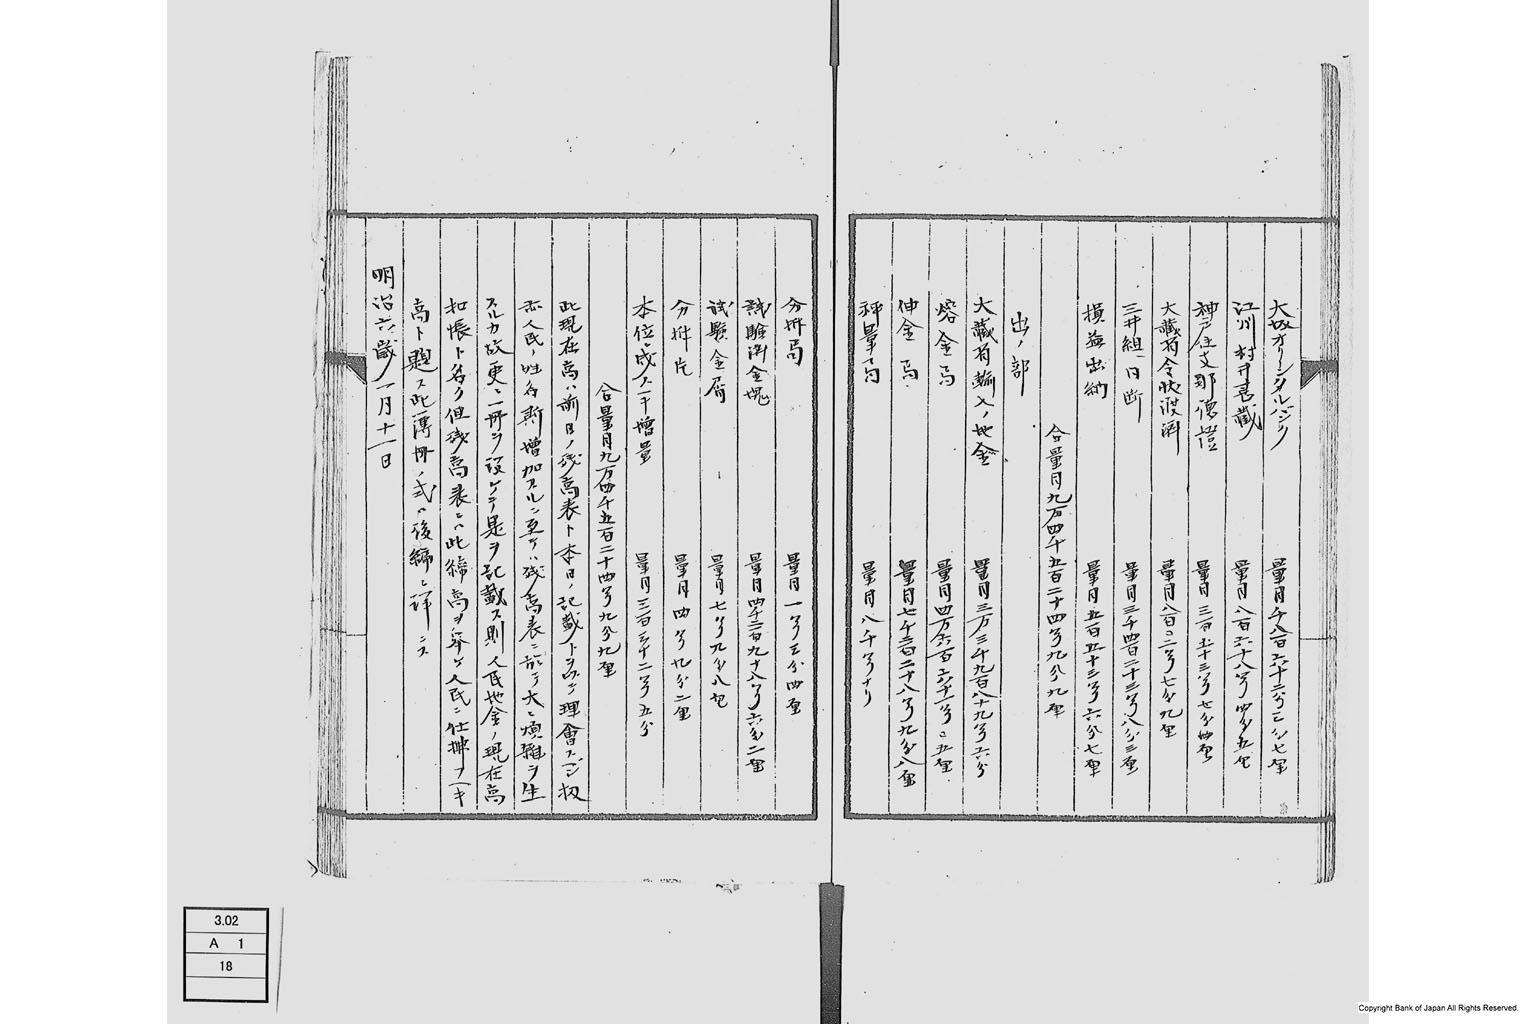 大坂オリーンタルバンク 量目千八百六十二匁三分七厘
江州村井喜蔵 量目八百六十八匁四分五厘
神戸住支那徳澄 量目三百五十三匁七分四厘
大藏省今秋渡濟 量目八百〇二匁七分九厘
三井組 日 量目三千四百二十三匁八分三厘
損益出納 量目五百五十三匁六分七厘
合量目九万四千五百二十四匁九分九厘
出ノ部
大藏省輸入ノ地金 量目三万三千九百八十九匁六分
熔金局 量目四万六百六十一匁〇五厘
伸金局 量目七千三百二十八匁九分八厘
秤量局 量目八千匁ナリ
分析局 量目一匁三分四厘
試驗濟金塊 量目四千二百九十八匁六分二厘
試驗金屑 量目七匁九分八厘
分析片 量目四匁九分二厘
本位ニ成スニ干増量 量目三百三十二匁五分
合量目九万四千五百二十四匁九分九厘
此現在高ハ前日ノ残高表ト本日ノ記載トヲ以テ理會スベシ扨
亦人民ノ姓名斯增加スルニ至テハ残高表ニ於テ大ニ煩雜ヲ生
スルカ故更ニ一冊ヲ設ケテ是ヲ記載ス則人民地金ノ現在高
扣帳ト名ク但残高表ニハ此締高ヲ擧ケ人民ニ仕拂フヘキ
高ト題ス此薄冊ノ式ハ後編ニ詳ニス
明治六歳一月十一日
3.02
A 1
18
Copyright Bank of Japan All Rights Reserved.